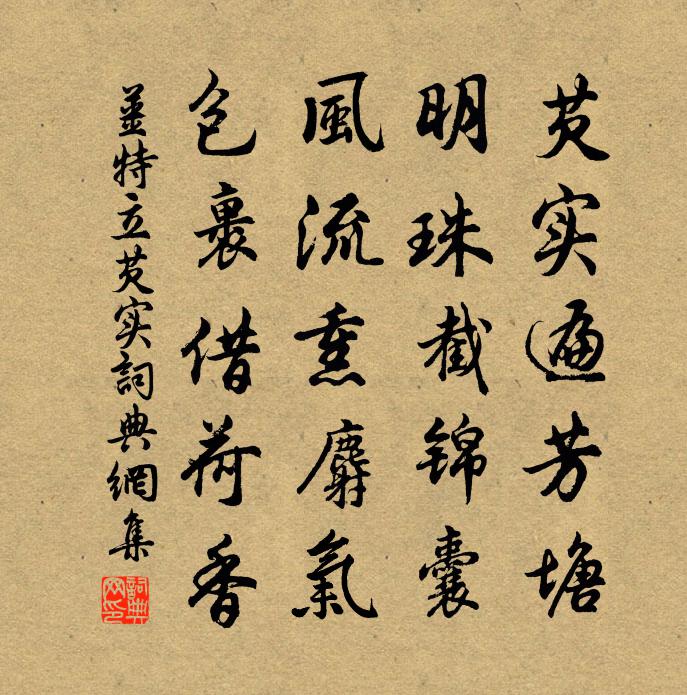 芡实遍芳塘
明珠截锦囊
風流熏麝氣
包裹借荷香
姜特立芡实詞典網集
詞典網印